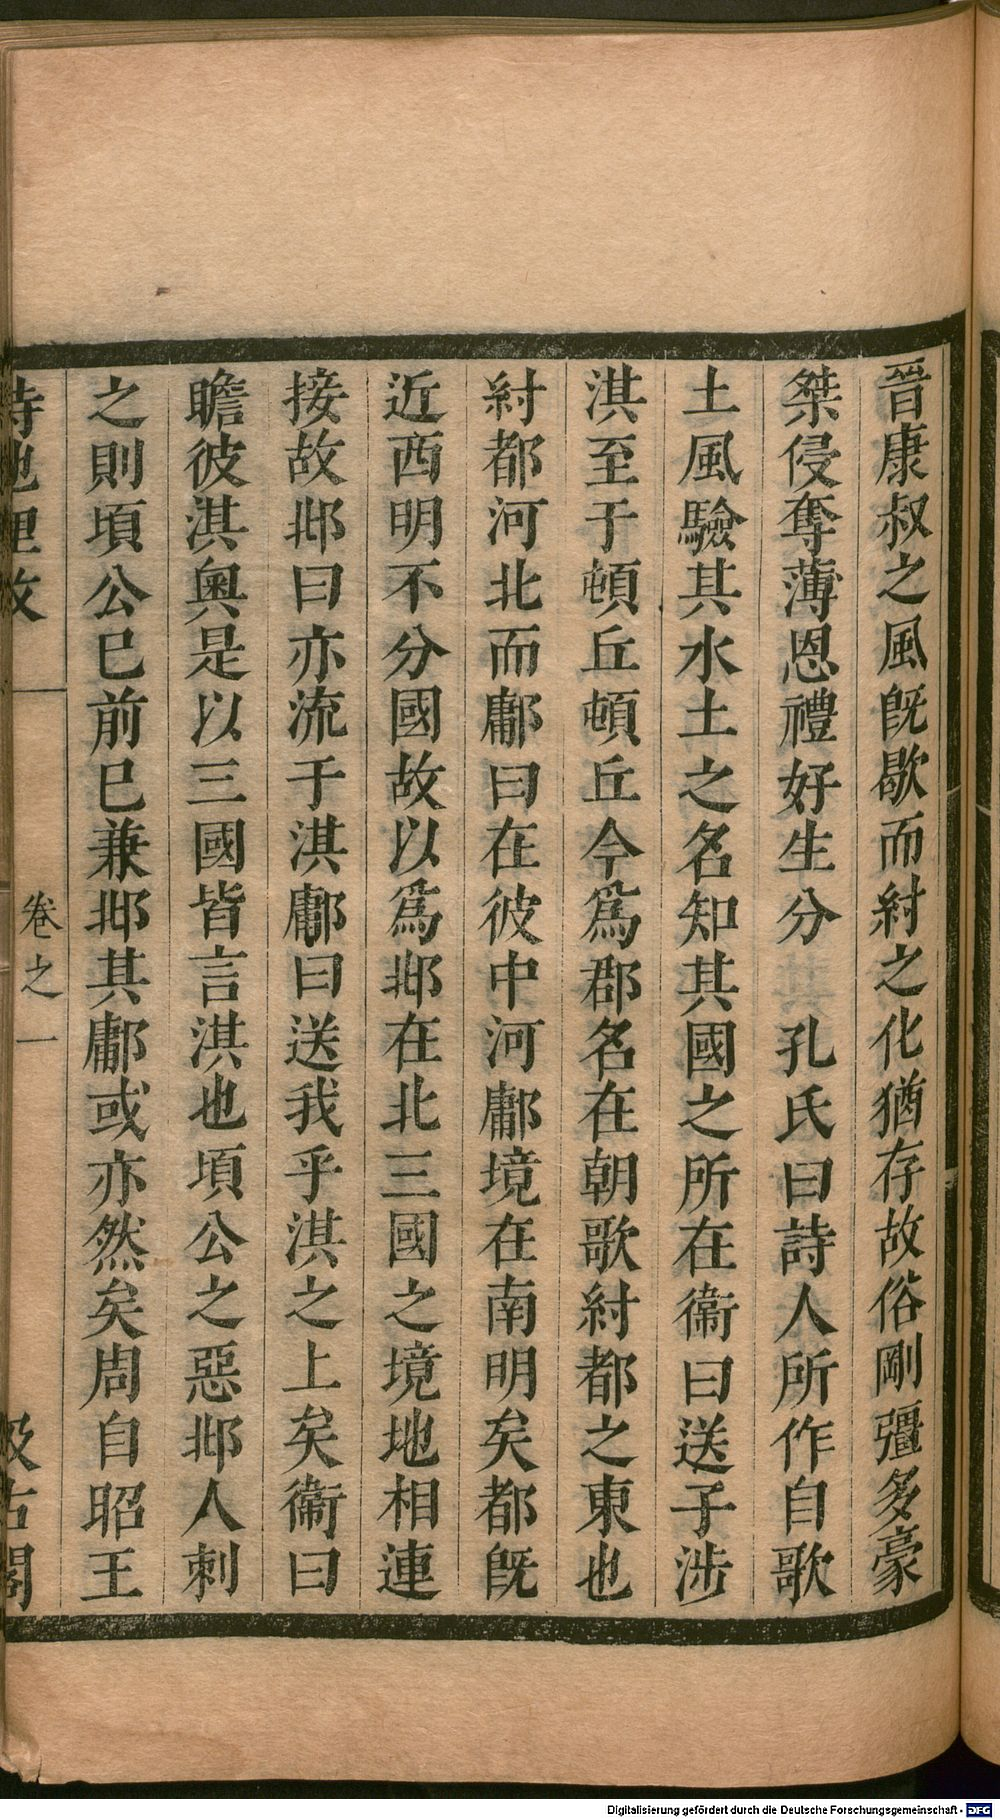 晉康叔之風旣歇而紂之化猶存故俗剛彊多豪
桀侵奪薄恩禮好生分　孔氏曰詩人所作自歌
土風驗其水土之名知其國之所在衞曰送子涉
淇至于頓丘頓丘今爲郡名在朝歌紂都之東也
紂都河北而鄘曰在彼中河鄘境在南明矣都旣
近西明不分國故以爲邶在北三國之境地相連
接故邶曰亦流于淇鄘曰送我乎淇之上矣衞曰
瞻彼淇奧是以三國皆言淇也頃公之惡邶人刺
之則頃公已前已兼邶其鄘或亦然矣周自昭王
詩地里攷　卷之一　汲古閣
Digitalisierung gefördert durch die Deutsche Forschungsgemeinschaft - DFG